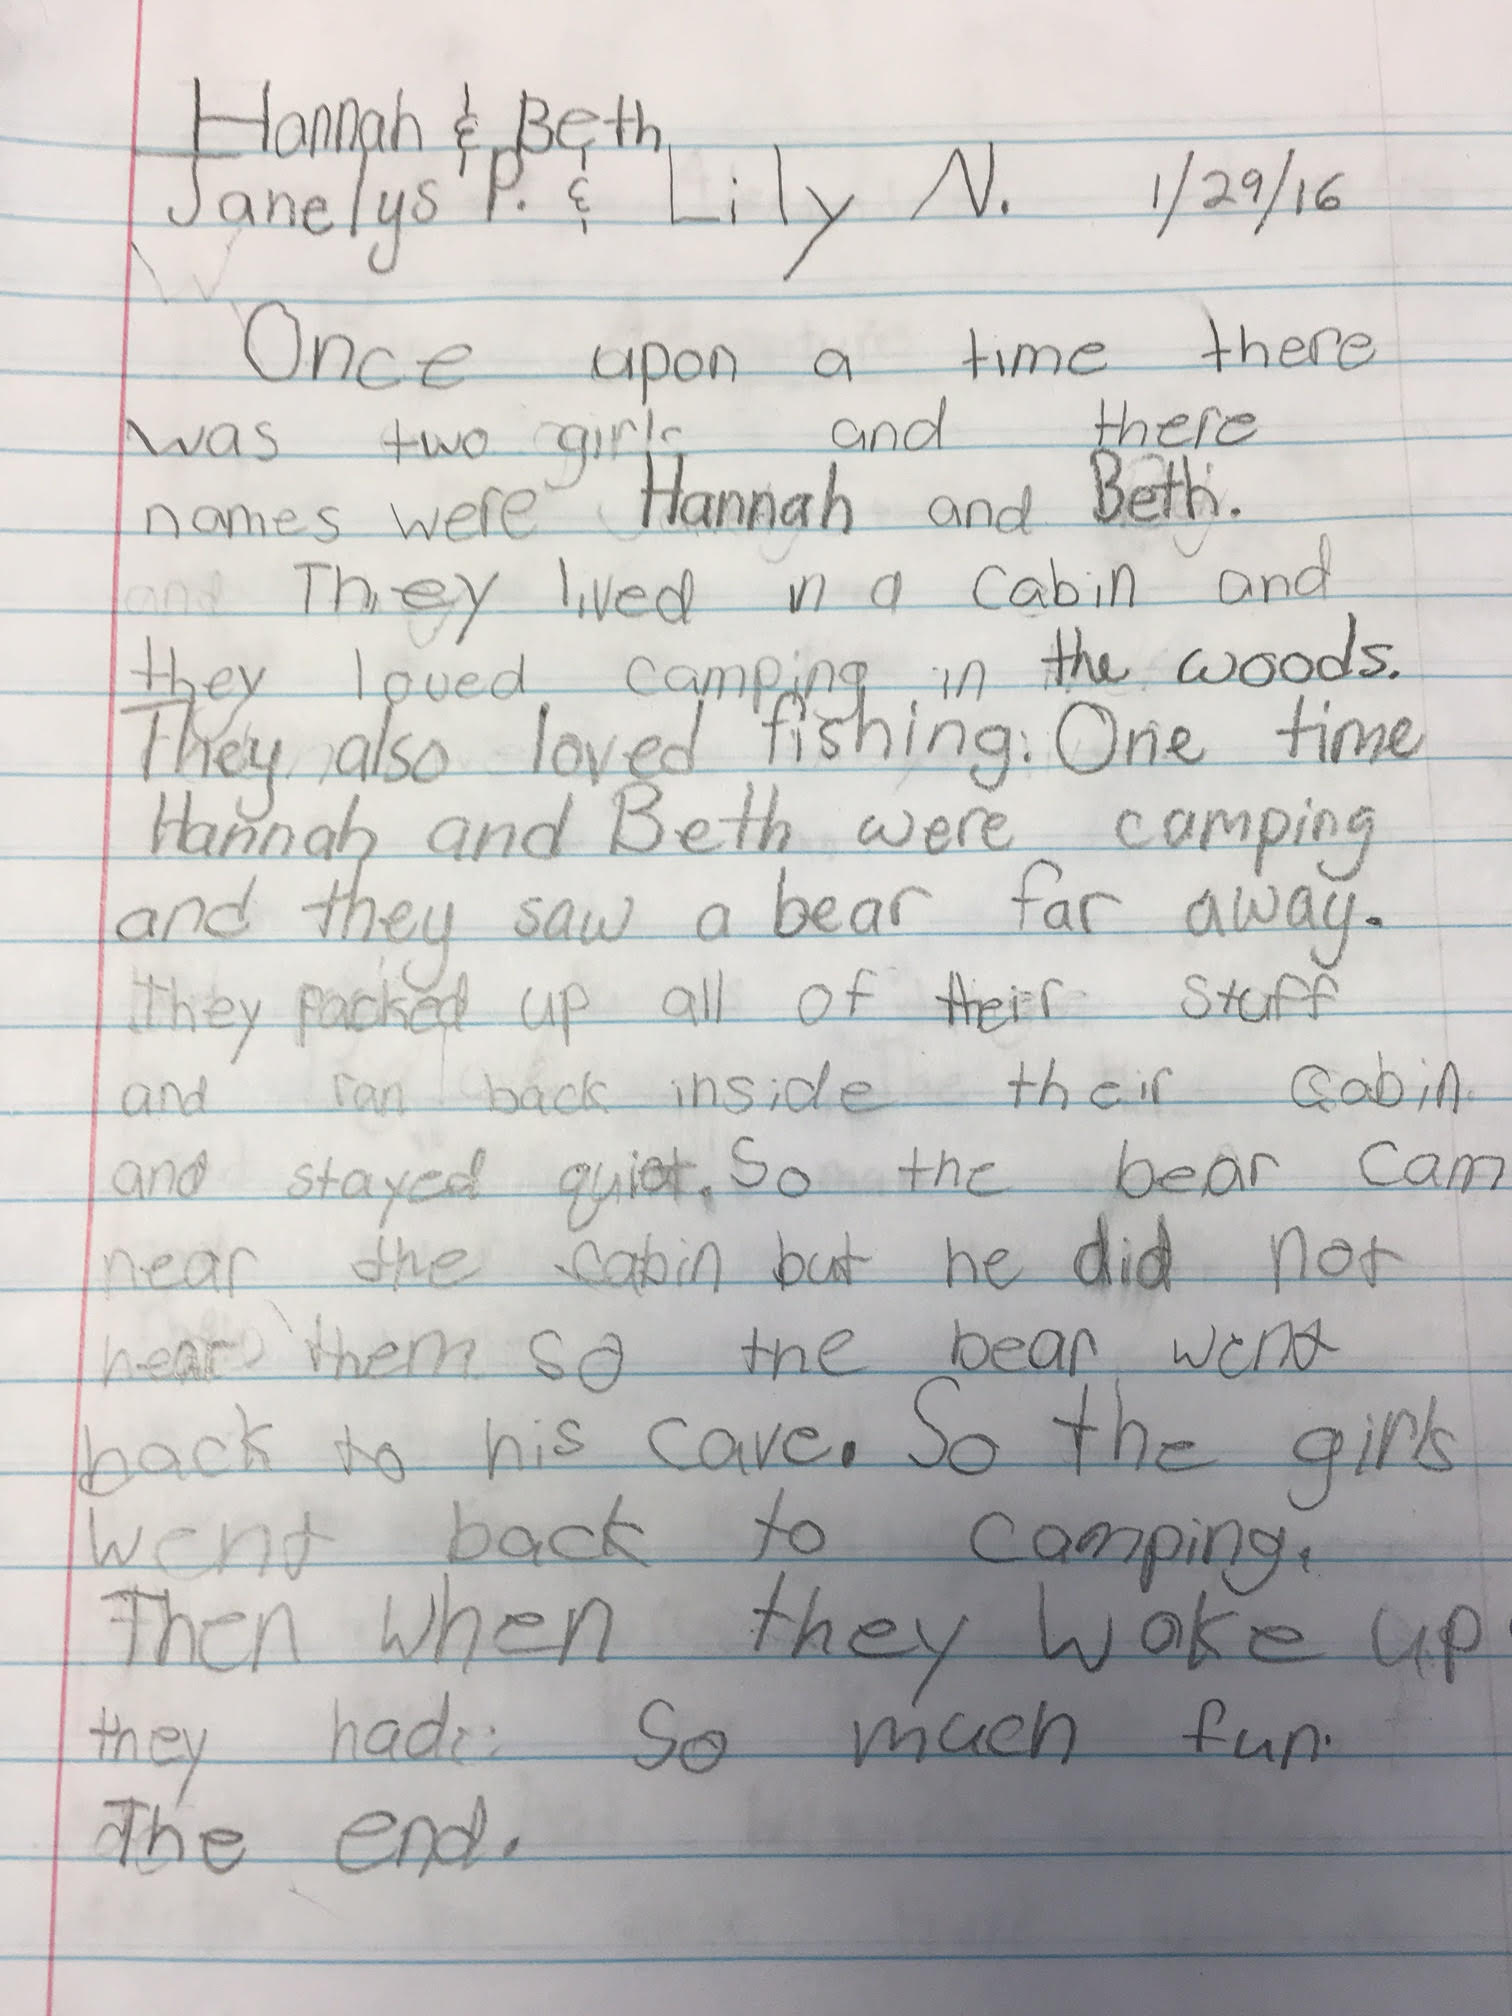 Hannah & Beth
Janelys P. & Lily N. 1/29/16
Once upon a time there
was two girls and there
names were Hannah and Beth.
They lived in a cabin and
they loved camping in the woods.
They also loved fishing. One time
Hannah and Beth were camping
and they saw a bear far away.
They packed up all of their stuff
and ran back inside their cabin
and stayed quiet. So the bear cam
near the cabin but he did not
hear them so the bear went
back to his cave. So the girls
went back to camping.
Then when they woke up
they had so much fun.
The end.